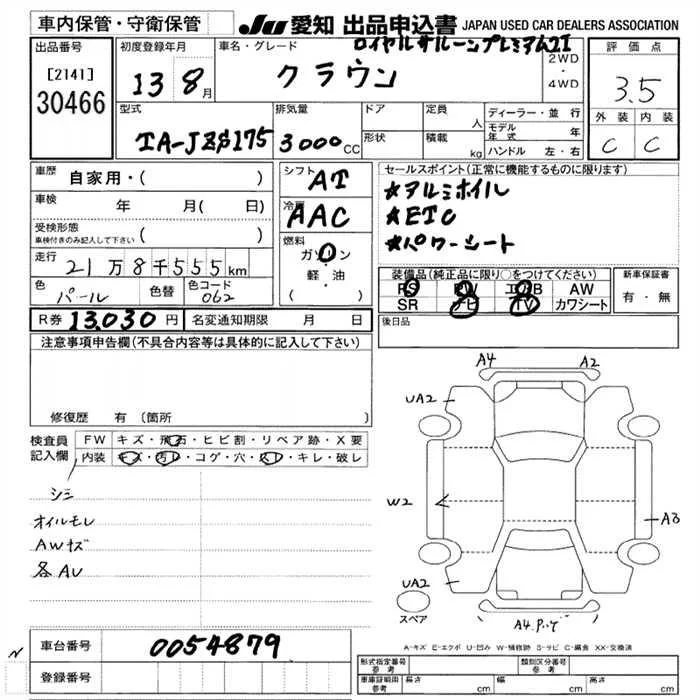 車内保管・守衛保管
JU 愛知 出品申込書 JAPAN USED CAR DEALERS ASSOCIATION
出品番号
[2141]
30466
初度登録年月
13 8月
車名・グレード
ロイヤルサルーンプレミアム21
クラウン
2WD
・
4WD
評価点
3.5
外装 内装
C C
型式
TA-JZS175
排気量
3000cc
ドア
形状
定員 人
積載 kg
ディーラー・並行
モデル年式 年
ハンドル 左・右
車歴 自家用・( )
車検 年 月( 日)
受検形態
車検付きのみ記入して下さい ( )
走行 21万8千555km
色 パール
色替
色コード
062
R券 13,030円
名変通知期限 月 日
シフト AT
冷房
AAC
燃料
ガソリン
軽・油
セールスポイント(正常に機能するものに限ります)
★アルミホイル
★ETC
★パワーシート
装備品(純正品に限り○をつけてください)
PS PW エアB AW
SR ナビ TV カワシート
新車保証書
有・無
後日品
注意事項申告欄(不具合内容等は具体的に記入して下さい)
修復歴 有(箇所
検査員
記入欄
FW キズ・飛石・ヒビ割・リペア跡・X要
内装 キズ・汚レ・コゲ・穴・スレ・キレ・破レ
シミ
オイルモレ
AWキズ
各AU
A4 A2
UA2
W2
A3
UA2
スペア
A4.P.ゲ
A-キズ E-エクボ U-凹み W-補修跡 S-サビ C-腐食 XX-交換済
車台番号 0054879
登録番号
N
形式指定番号
参考
類別区分番号
参考
車庫証明用
参考
長さ cm
幅 cm
高さ cm